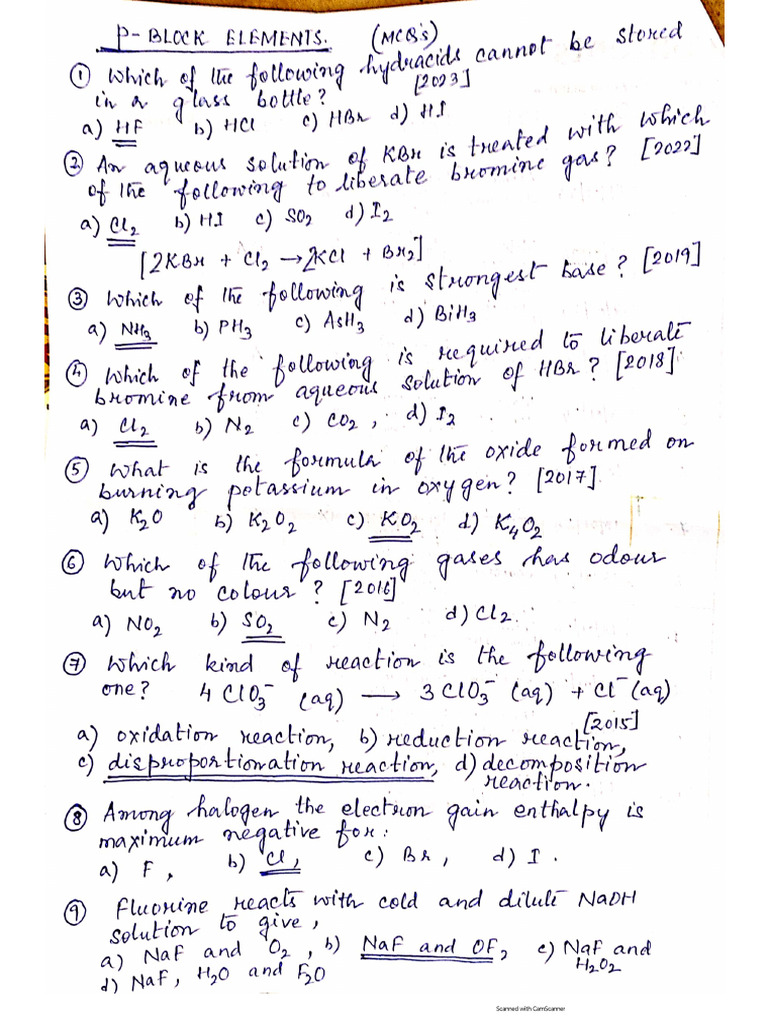 P-BLOCK ELEMENTS. (MCQ's)
① Which of the following hydracids cannot be stored
in a glass bottle? [2023]
a) HF b) HCl c) HBr d) HI
② An aqueous solution of KBr is treated with which
of the following to liberate bromine gas? [2022]
a) Cl₂ b) HI c) SO₂ d) I₂
[2KBr + Cl₂ → 2KCl + Br₂]
③ Which of the following is strongest base? [2019]
a) NH₃ b) PH₃ c) AsH₃ d) BiH₃
④ Which of the following is required to liberate
bromine from aqueous solution of HBr? [2018]
a) Cl₂ b) N₂ c) CO₂, d) I₂
⑤ What is the formula of the oxide formed on
burning potassium in oxygen? [2017]
a) K₂O b) K₂O₂ c) KO₂ d) K₄O₂
⑥ Which of the following gases has odour
but no colour? [2016]
a) NO₂ b) SO₂ c) N₂ d) Cl₂.
⑦ Which kind of reaction is the following
one? 4 ClO₃⁻ (aq) → 3 ClO₃⁻ (aq) + Cl⁻ (aq)
[2015]
a) oxidation reaction, b) reduction reaction,
c) disproportionation reaction, d) decomposition
reaction.
⑧ Among halogen the electron gain enthalpy is
maximum negative for:
a) F, b) Cl, c) Br, d) I.
⑨ Fluorine reacts with cold and dilute NaOH
solution to give,
a) NaF and O₂, b) NaF and OF₂ c) NaF and
H₂O₂
d) NaF, H₂O and F₂O
Scanned with CamScanner